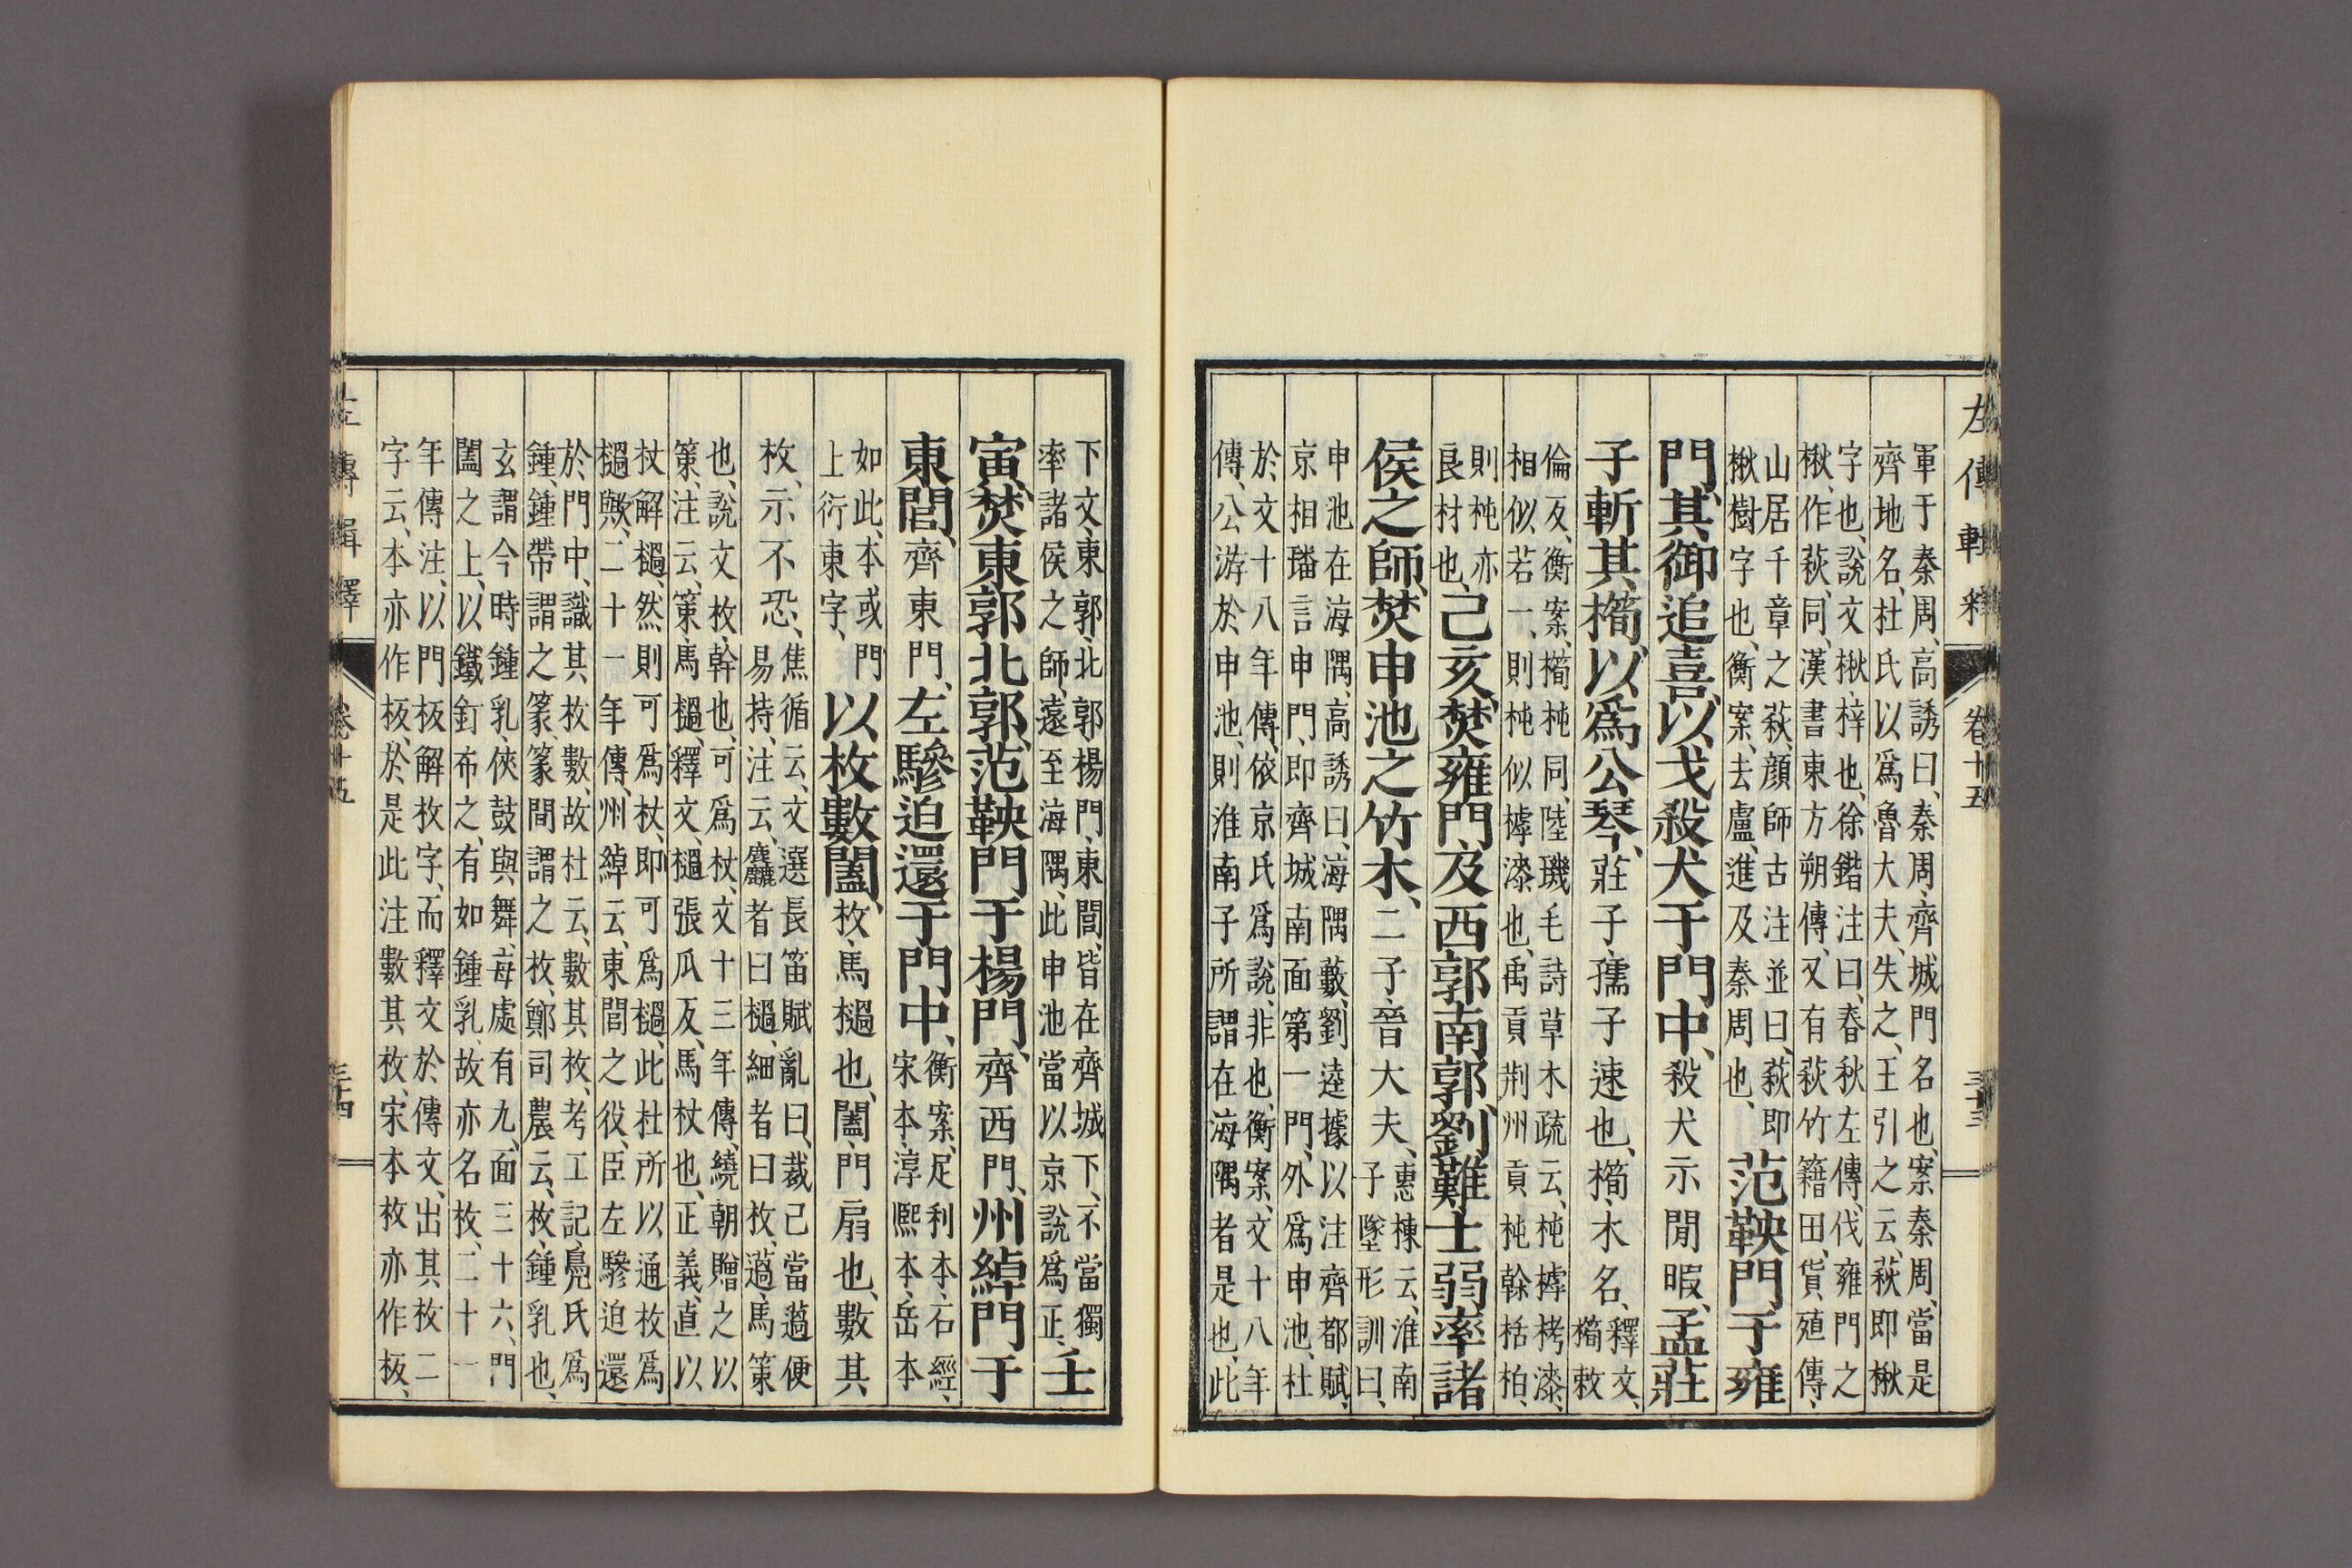 左傳輯釋 卷十五 三十三
軍于秦周、高誘曰、秦周、齊城門名也、案秦周、當是
齊地名、杜氏以爲魯大夫、失之、王引之云、萩即楸
字也、說文楸、梓也、徐鍇注曰、春秋左傳、伐雍門之
楸、作萩、同、漢書東方朔傳、又有萩竹籍田、貨殖傳、
山居千章之萩、顏師古注並曰、萩即
楸樹字也、衡案、去盧、進及秦周也、
范鞅門于雍
門、其御追喜、以戈殺犬于門中、殺犬示閒暇、孟莊
子斬其橁、以爲公琴、莊子、孺子速也、橁、木名、
釋文、
橁敕
倫反、衡案、橁杶同、陸璣毛詩草木疏云、杶樗栲漆、
相似若一、則杶似樗漆也、禹貢荆州貢杶榦栝柏、
則杶亦
良材也、
己亥、焚雍門、及西郭南郭、劉難士弱率諸
侯之師、焚申池之竹木、二子、晉大夫、
惠棟云、淮南
子墬形訓曰、
申池在海隅、高誘曰、海隅藪、劉逵據以注齊都賦、
京相璠言申門、即齊城南面第一門、外爲申池、杜
於文十八年傳、依京氏爲說、非也、衡案、文十八年
傳、公游於申池、則淮南子所謂在海隅者是也、此
下文東郭、北郭楊門、東閭、皆在齊城下、不當獨
率諸侯之師、遠至海隅、此申池當以京說爲正、
壬
寅、焚東郭北郭、范鞅門于楊門、齊西門、州綽門于
東閭、齊東門、左驂迫還于門中、
衡案、足利本、石經、
宋本、淳熙本、岳本
如此、本或門
上衍東字、
以枚數闔、枚、馬檛也、闔、門扇也、數其
枚、示不恐、
焦循云、文選長笛賦亂曰、裁已當薖便
易持、注云、麤者曰檛、細者曰枚、薖、馬策
也、說文枚、幹也、可爲杖、文十三年傳、繞朝贈之以
策、注云、策、馬檛、釋文、檛、張瓜反、馬杖也、正義、直以
杖解檛、然則可爲杖、即可爲檛、此杜所以通枚爲
檛歟、二十一年傳、州綽云、東閭之役、臣左驂迫還
於門中、識其枚數、故杜云、數其枚、考工記、鳧氏爲
鍾、鍾帶謂之篆、篆間謂之枚、鄭司農云、枚、鍾乳也、
玄謂今時鍾乳俠鼓與舞、每處有九、面三十六、門
闔之上、以鐵釘布之、有如鍾乳、故亦名枚、二十一
年傳注、以門板解枚字、而釋文於傳文、出其枚二
字云、本亦作板、於是此注數其枚、宋本枚亦作板、
左傳輯釋 卷十五 三十四